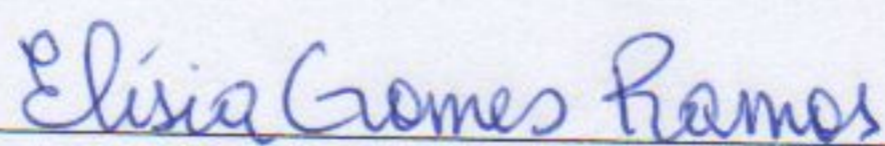 Elísia Gomes Ramos